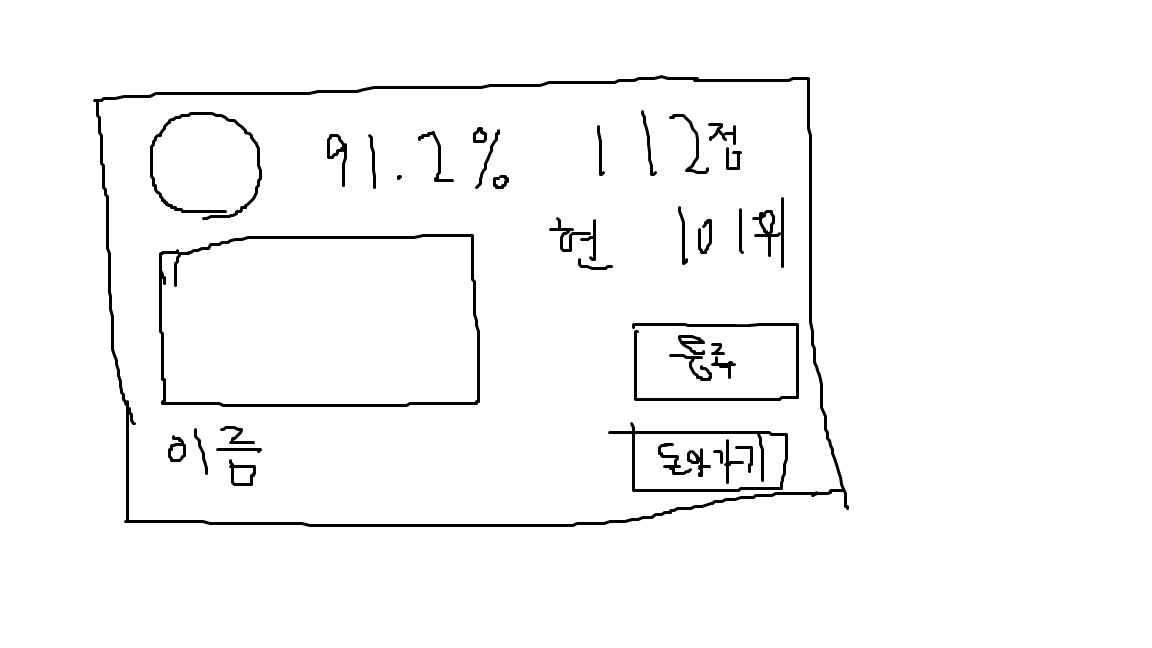 91.2% 112점
현 101위
이름
돌아가기